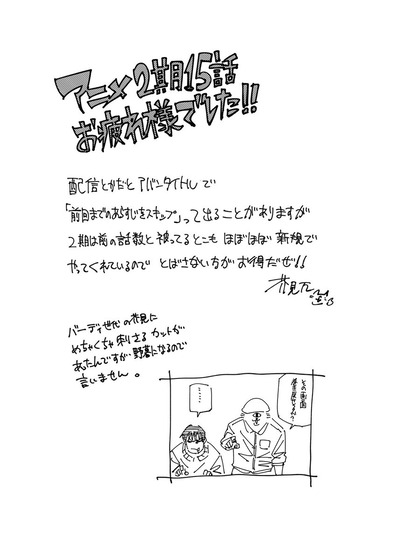 アニメ2期15話
お疲れ様でした!!
配信とかだとアバンタイトルで
「前回までのあらすじをスキップ」って出ることがありますが
2期は前の話数と被ってるとこも ほぼほぼ 新規で
やってくれているので とばさない方が お得だぜ!!
バーディ世代の花見に
めちゃくちゃ刺さる カットが
あったんですが 野暮になるので
言いません。
……